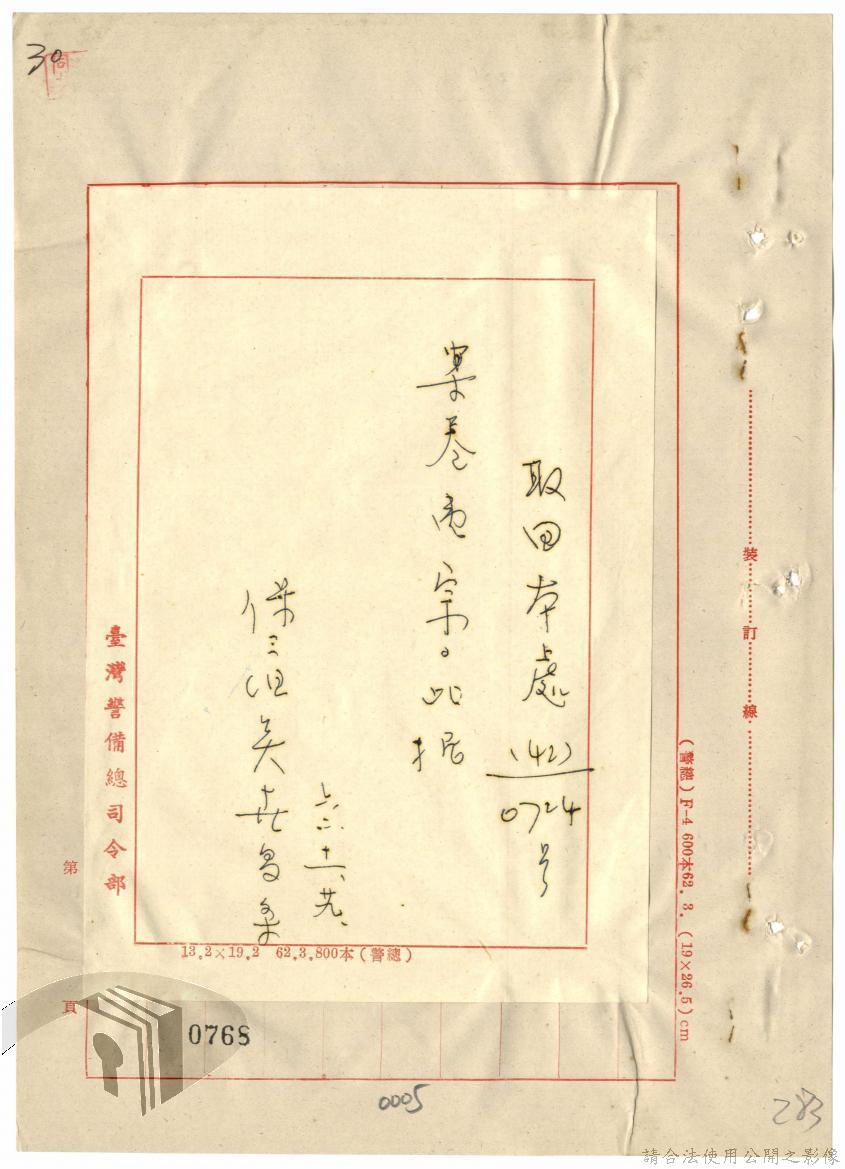 30
取回本處(42)0724号
案卷壹宗。此据
保三組吳
六二、十一、廿九、
臺灣警備總司令部
13.2×19.2 62.3.800本(警總)
裝訂線
(警總)F-4 600本62.3.(19×26.5)cm
第 頁
0768
0005
283
請合法使用公開之影像